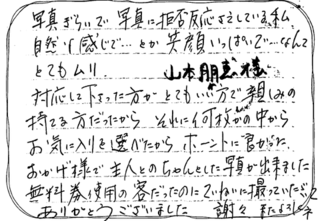 写真ぎらいで写真に拒否反応さえしている私。
自然な感じで…とか笑顔いっぱいで…なんて
とてもムリ。
山本朋志様
対応して下さった方がとてもいい方で親しみの
持てる方だったから それに何枚かの中から
お気に入りを選べたから ホントに良かった。
おかげ様で主人とのちゃんとした写真が出来ました
無料券使用の客だったのにていねいに撮っていただき
ありがとうございました 謝々